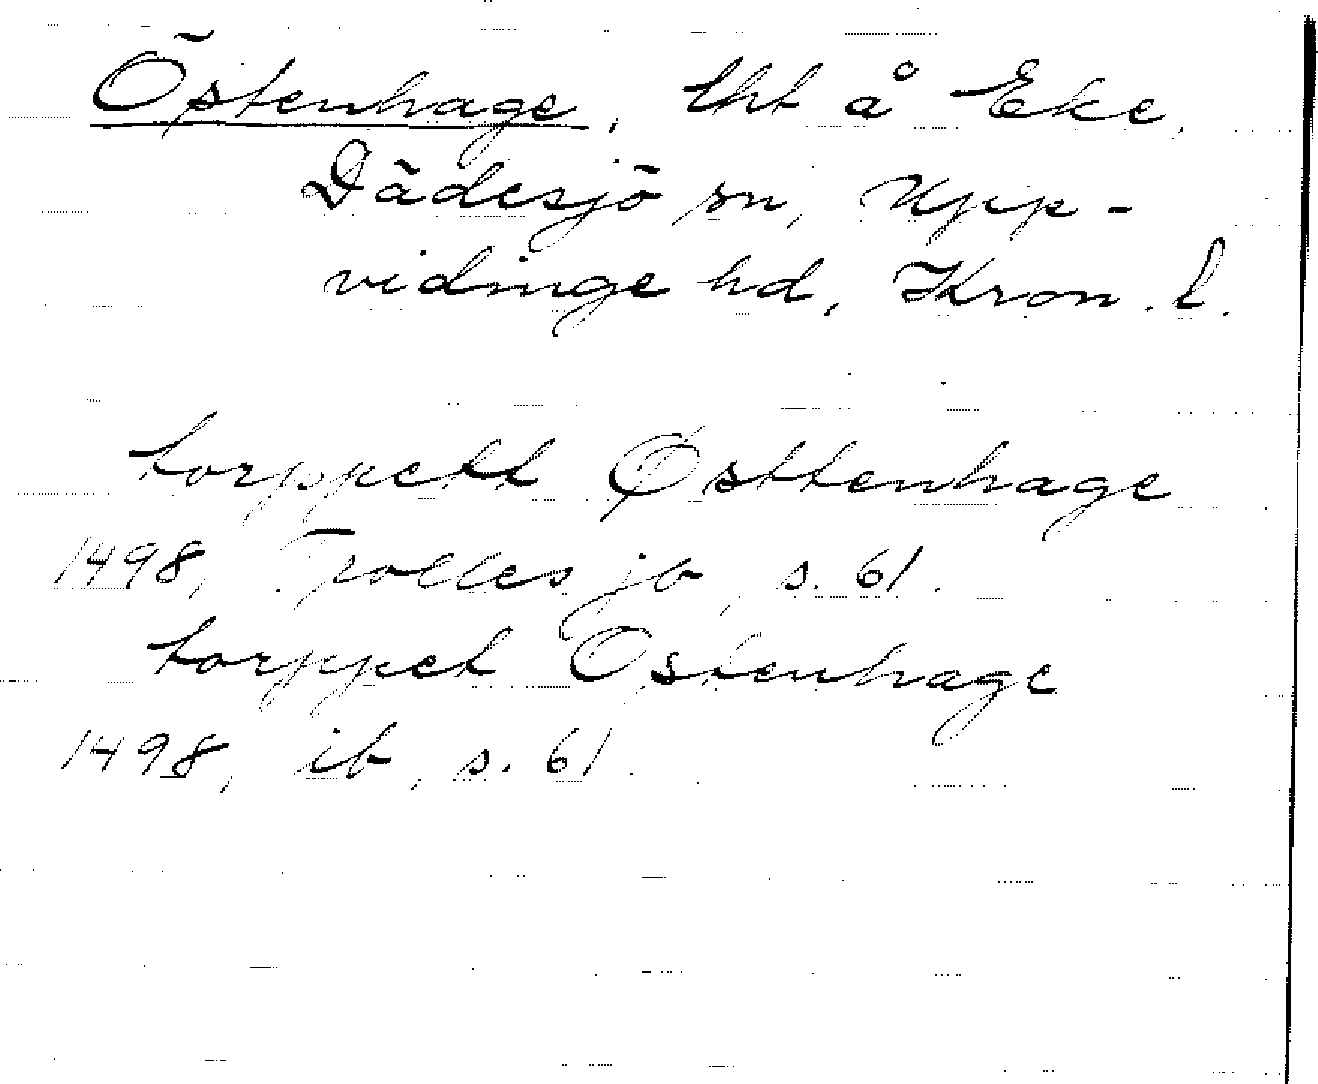 Östenhage, lht å Eke,
Dädesjö sn, Upp-
vidinge hd, Kron. l.
torppett Østtenhage
1498, Trolles jb, s. 61.
torppet Ostenhage
1498, ib, s. 61.